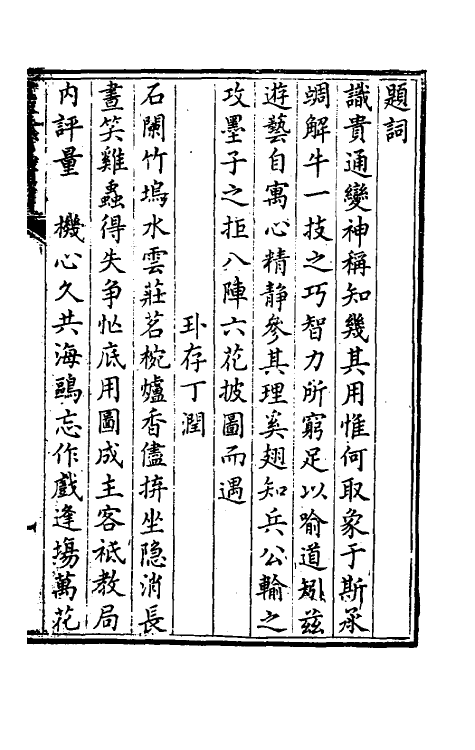 題詞
識貴通變神稱知幾其用惟何取象于斯承
蜩解牛一技之巧智力所窮足以喻道矧兹
遊藝自寓心精靜參其理奚翅知兵公輸之
攻墨子之拒八陣六花披圖而遇
卧存丁潤
石闌竹塢水雲莊茗椀爐香儘拚坐隐消長
晝笑雞蟲得失争忙底用圖成主客衹教局
内評量　機心久共海鷗忘作戲逢塲萬花